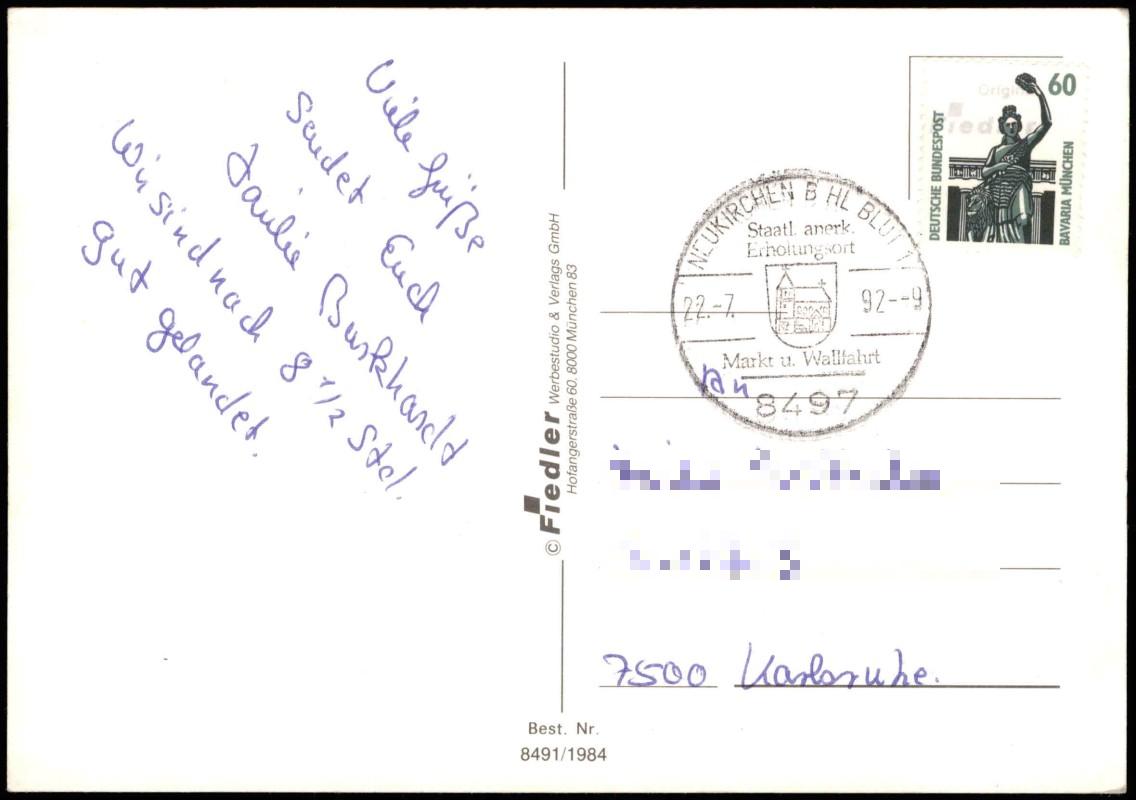 Viele Grüße
sendet Euch
Familie Burkhardt
Wir sind nach 8 1/2 Std.
gut gelandet.
© Fiedler Werbestudio & Verlags GmbH
Hofangerstraße 60, 8000 München 83
Best. Nr.
8491/1984
60
DEUTSCHE BUNDESPOST
BAVARIA MÜNCHEN
Fiedler
NEUKIRCHEN B HL BLUT 1
Staatl. anerk.
Erholungsort
22.-7. 92.--9
Markt u. Wallfahrt
8497
An
7500 Karlsruhe.